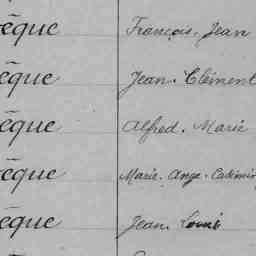 èque François. Jean
èque Jean. Clément
èque Alfred. Marie
èque Marie. Ange. Casimir
èque Jean. Louis